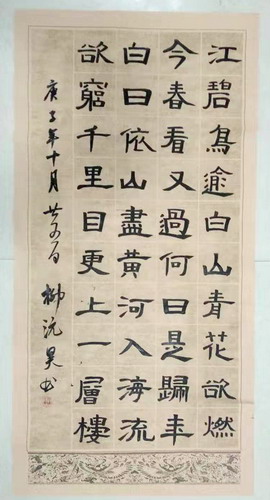 江碧鳥逾白山青花欲燃
今春看又過何日是歸年
白日依山盡黄河入海流
欲窮千里目更上一層樓
庚子年十月 柳沅昊书